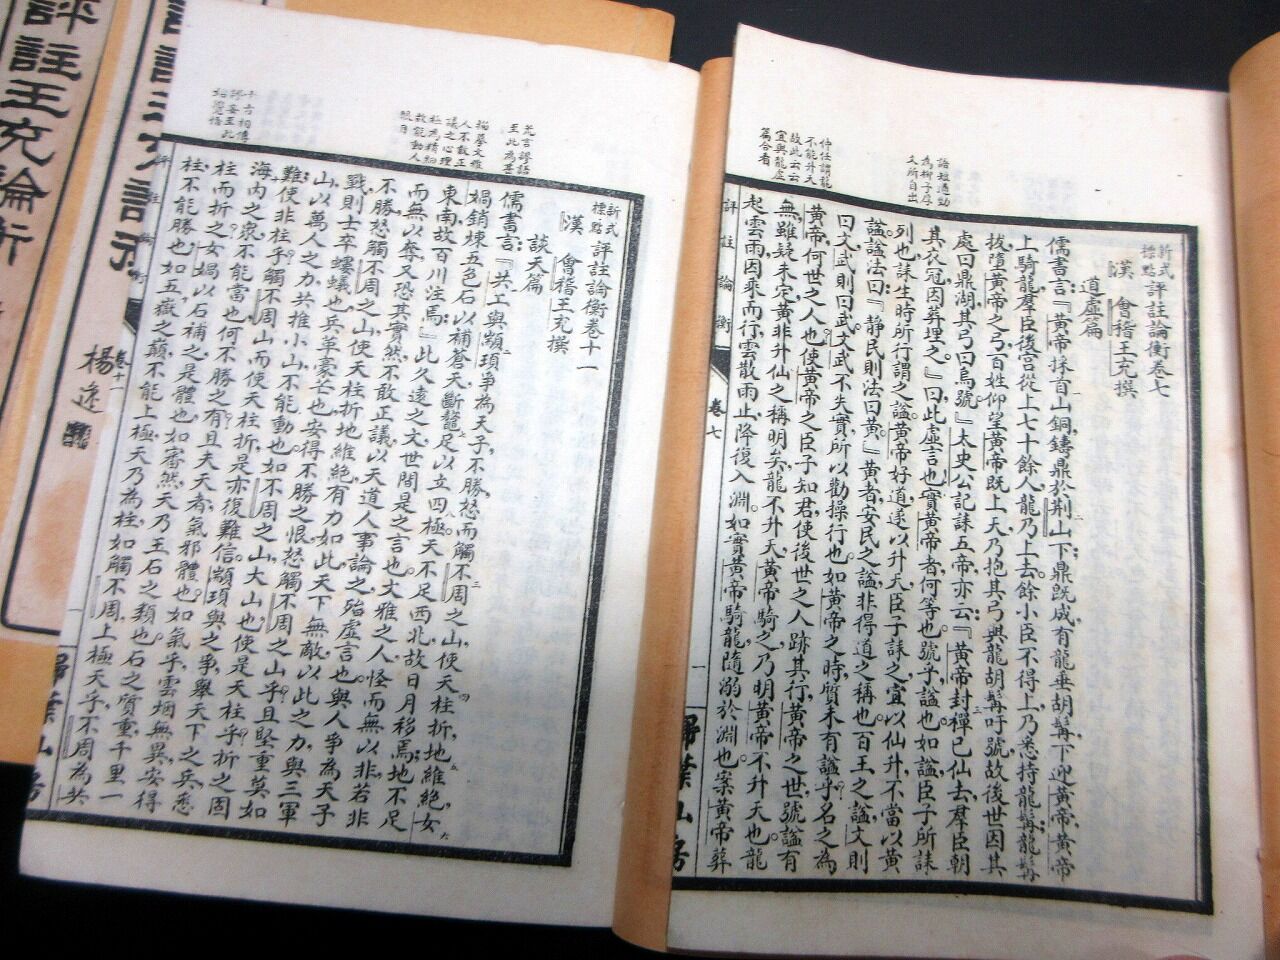 語短通勁
為柳子厚
文所自出
仲任謂龍
不能升天
故此云云
宜與龍虛
篇合看
新式標點評註論衡卷七
漢 會稽王充撰
道虛篇
儒書言：『黃帝採首山銅，鑄鼎於荆山下；鼎既成，有龍垂胡髯，下迎黃帝，黃帝
上騎龍，羣臣後宮從上七十餘人，龍乃上去，餘小臣不得上，乃悉持龍髯，龍髯
拔，墮黃帝之弓，百姓仰望黃帝既上天，乃抱其弓與龍胡髯吁號，故後世因其
處曰鼎湖，其弓曰烏號。』太史公記誄五帝，亦云：『黃帝封禪已，仙去，羣臣朝
其衣冠，因葬埋之。』曰，此虛言也。實黃帝者何等也？號乎，謚也？如謚，臣子所誄
列也，誄生時所行，謂之謚，黃帝好道，遂以升天，臣子誄之，宜以仙升，不當以黃
謚。謚法曰：『静民則法曰黃。』黃者，安民之謚，非得道之稱也。百王之謚，文則
曰文，武則曰武，文武不失實，所以勸操行也。如黃帝之時質，未有謚乎？名之為
黃帝，何世之人也？使黃帝之臣子知君，使後世之人跡其行，黃帝之世，號謚有
無，雖疑未定，黃非升仙之稱，明矣。龍不升天，黃帝騎之，乃明黃帝不升天也。龍
起雲雨，因乘而行，雲散雨止，降復入淵。如實黃帝騎龍，隨溺於淵也。案黃帝葬
評註論衡 卷七 一 掃葉山房
荒言謬語
至此為甚
描摹文雅
人不敢正
議之心理
極為精細
故能動人
眼目
千古相傳
謬妄至此
始覺悟
新式標點評註論衡卷十一
漢 會稽王充撰
談天篇
儒書言：『共工與顓頊爭為天子，不勝，怒而觸不周之山，使天柱折，地維絕，女
媧銷煉五色石以補蒼天，斷鼇足以立四極，天不足西北，故日月移焉；地不足
東南，故百川注焉。』此久遠之文，世間是之言也。文雅之人，怪而無以非，若非
而無以奪，又恐其實然，不敢正議。以天道人事論之，殆虛言也。與人爭為天子
不勝，怒觸不周之山，使天柱折，地維絕，有力如此，天下無敵。以此之力，與三軍
戰，則士卒螻蟻也，兵革毫芒也，安得不勝之恨，怒觸不周之山乎？且堅重莫如
山，以萬人之力，共推小山，不能動也。如不周之山，大山也，使是天柱乎？折之固
難；使非柱乎？觸不周山而使天柱折，是亦復難。信顓頊與之爭，舉天下之兵，悉
海內之眾，不能當也，何不勝之有？且夫天者，氣邪？體也？如氣乎，雲烟無異，安得
柱而折之？女媧以石補之，是體也。如審然，天乃玉石之類也。石之質重，千里一
柱，不能勝也。如五嶽之巔，不能上極天，乃為柱，如觸不周，上極天乎？不周為共
評註論衡 卷十一 一 掃葉山房
評註王充論衡
楊逵